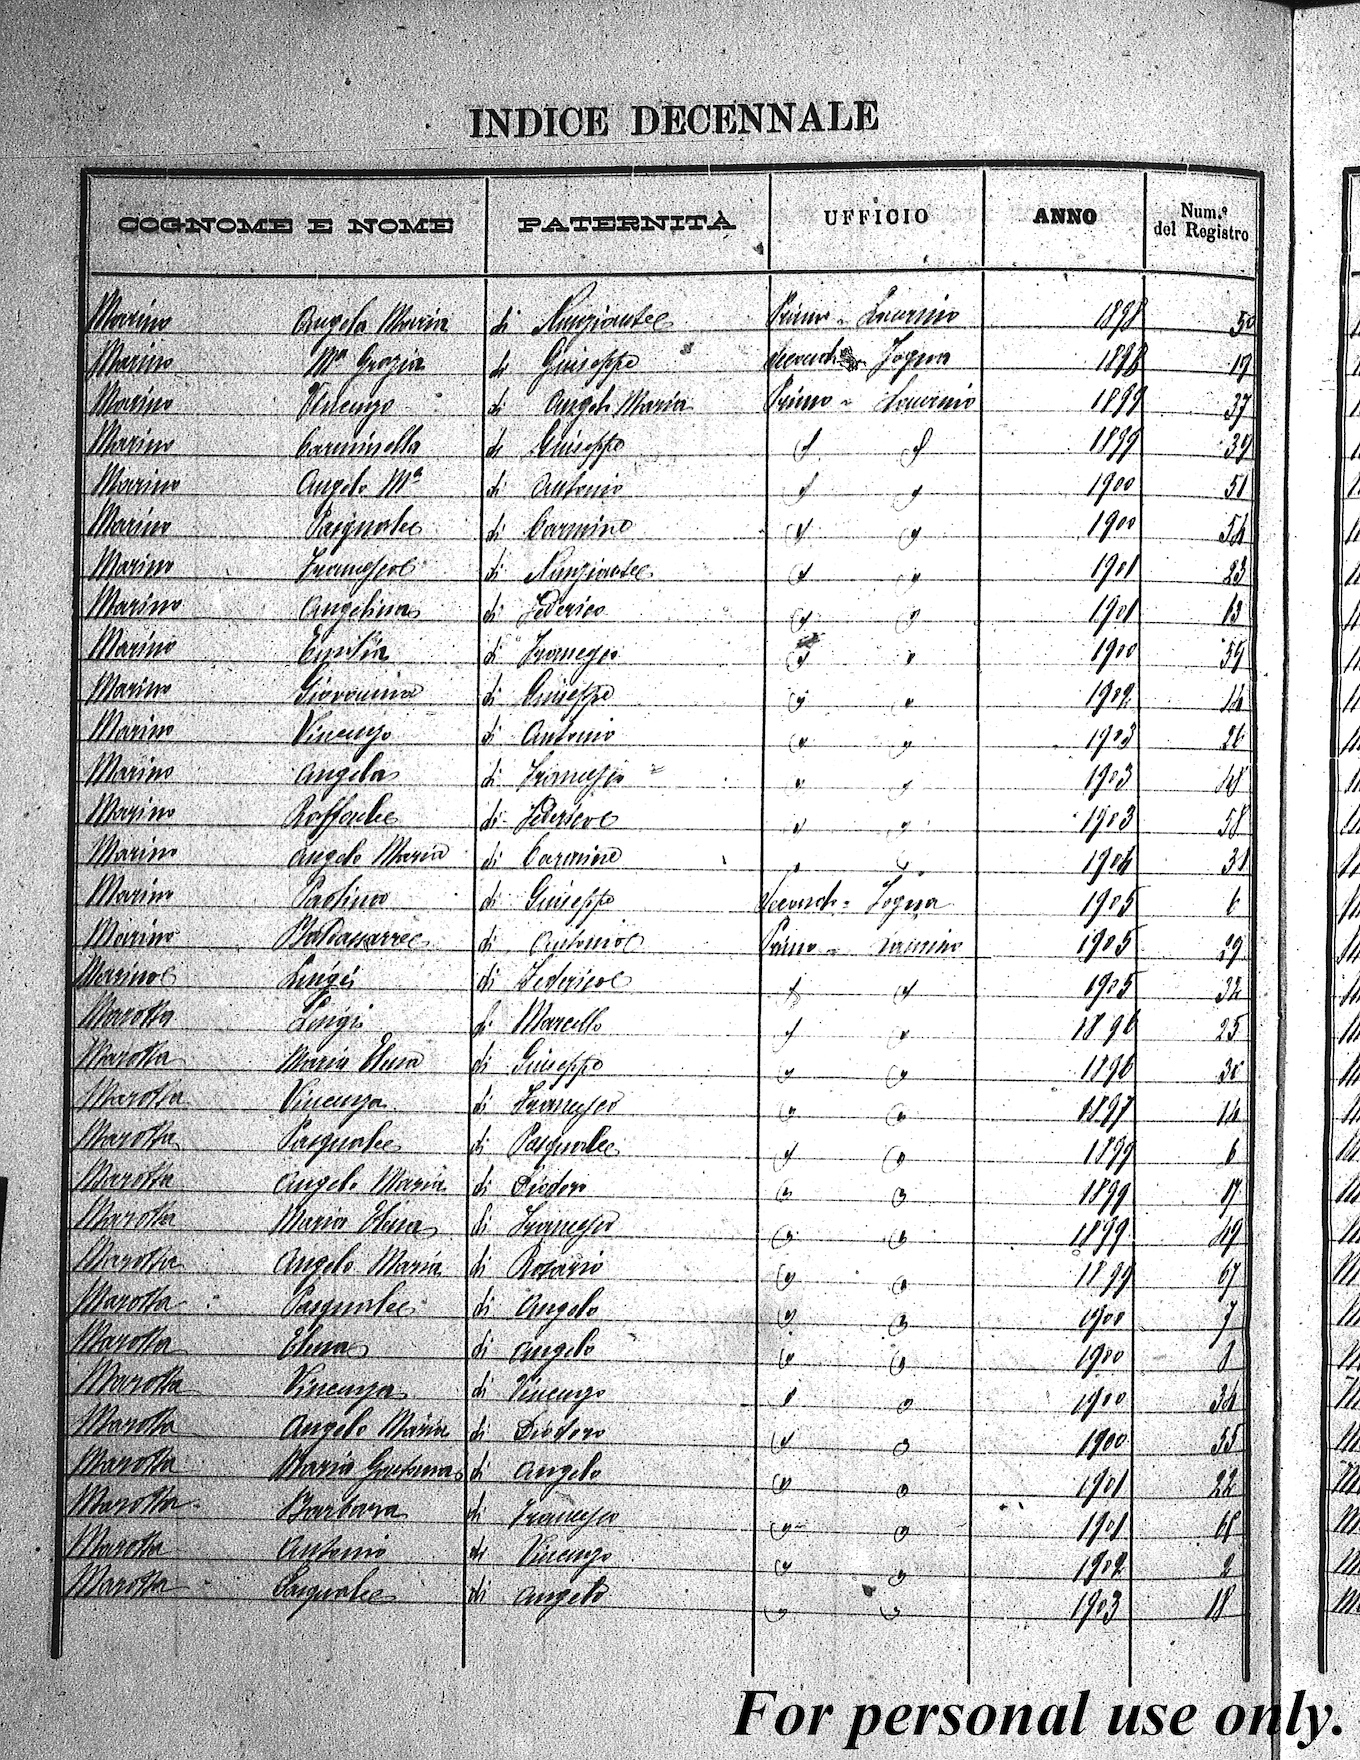 INDICE DECENNALE
COGNOME E NOME PATERNITÀ UFFICIO ANNO Num.º del Registro
Marino Angela Maria di Nunziante Primo - Laurino 1898 50
Marino Mª Grazia di Giuseppe Secondo Fogna 1898 19
Marino Vincenzo di Angelo Maria Primo - Laurino 1899 37
Marino Carminella di Giuseppe " " 1899 39
Marino Angelo Mª di Antonio " " 1900 51
Marino Pasquale di Carmine " " 1900 54
Marino Francesco di Nunziante " " 1901 23
Marino Angelina di Federico " " 1901 13
Marino Emilia di Francesco " " 1900 59
Marino Giovannina di Giuseppe " " 1902 14
Marino Vincenzo di Antonio " " 1903 26
Marino Angela di Francesco " " 1903 48
Marino Raffaele di Federico " " 1903 58
Marino Angelo Maria di Carmine " " 1904 31
Marino Paolino di Giuseppe Secondo - Fogna 1905 6
Marino Baldassarre di Antonio Primo - Laurino 1905 29
Marino Luigi di Federico " " 1905 32
Marotta Luigi di Marcello " " 1896 25
Marotta Maria Elena di Giuseppe " " 1896 30
Marotta Vincenza di Francesco " " 1897 14
Marotta Pasquale di Pasquale " " 1899 6
Marotta Angelo Maria di Diodoro " " 1899 17
Marotta Maria Elena di Francesco " " 1899 49
Marotta Angelo Maria di Rosario " " 1899 67
Marotta Pasquale di Angelo " " 1900 7
Marotta Elena di Angelo " " 1900 8
Marotta Vincenza di Vincenzo " " 1900 34
Marotta Angelo Maria di Diodoro " " 1900 35
Marotta Maria Gaetana di Angelo " " 1901 22
Marotta Barbara di Francesco " " 1901 68
Marotta Antonio di Vincenzo " " 1902 2
Marotta Pasquale di Angelo " " 1903 18
For personal use only.